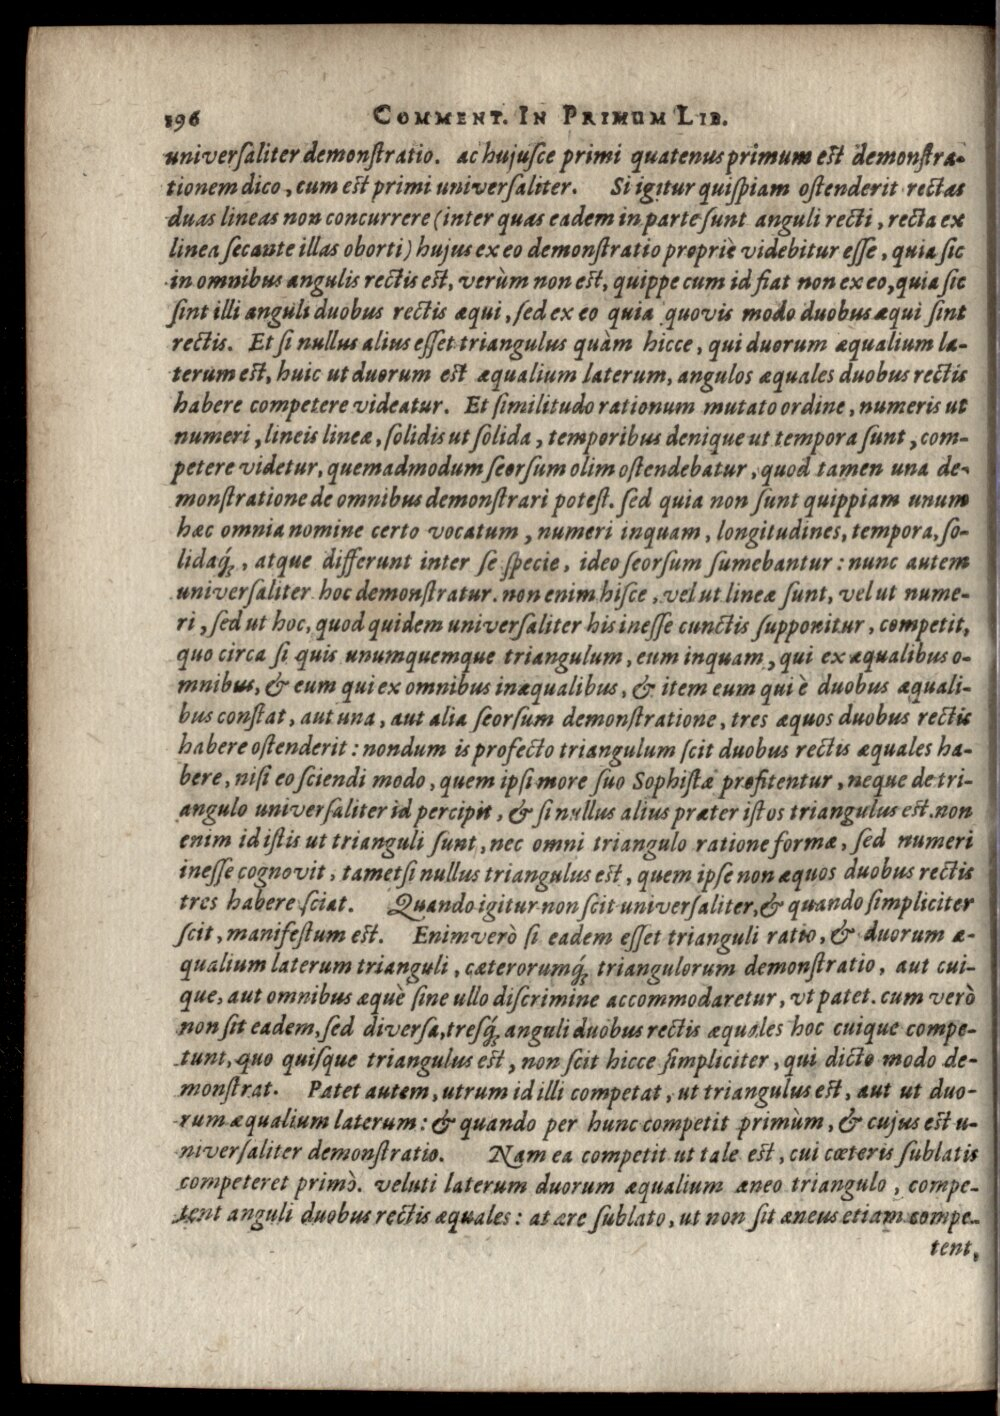 196 COMMENT. IN PRIMUM LIB.
univerſaliter demonſtratio. ac hujuſce primi quatenus primum eſt demonſtra-
tionem dico, cum eſt primi univerſaliter. Si igitur quiſpiam oſtenderit rectas
duas lineas non concurrere (inter quas eadem in parte ſunt anguli recti, recta ex
linea ſecante illas oborti) hujus ex eo demonſtratio propriè videbitur eſſe, quia ſic
in omnibus angulis rectis eſt, verùm non eſt, quippe cum id fiat non ex eo, quia ſic
ſint illi anguli duobus rectis æqui, ſed ex eo quia quovis modo duobus æqui ſint
rectis. Et ſi nullus alius eſſet triangulus quàm hicce, qui duorum æqualium la-
terum eſt, huic ut duorum est æqualium laterum, angulos æquales duobus rectis
habere competere videatur. Et ſimilitudo rationum mutato ordine, numeris ut
numeri, lineis lineæ, ſolidis ut ſolida, temporibus denique ut tempora ſunt, com-
petere videtur, quemadmodum ſeorſum olim oſtendebatur, quod tamen una de-
monſtratione de omnibus demonſtrari poteſt. ſed quia non ſunt quippiam unum
hæc omnia nomine certo vocatum, numeri inquam, longitudines, tempora, ſo-
lidaq́;, atque differunt inter ſe ſpecie, ideo ſeorſum ſumebantur: nunc autem
univerſaliter hoc demonſtratur. non enim hiſce, vel ut lineæ ſunt, vel ut nume-
ri, ſed ut hoc, quod quidem univerſaliter his ineſſe cunctis ſupponitur, competit,
quo circa ſi quis unumquemque triangulum, eum inquam, qui ex æqualibus o-
mnibus, & eum qui ex omnibus inæqualibus, & item eum qui è duobus æquali-
bus conſtat, aut una, aut alia ſeorſum demonſtratione, tres æquos duobus rectis
habere oſtenderit: nondum is profecto triangulum ſcit duobus rectis æquales ha-
bere, niſi eo ſciendi modo, quem ipſi more ſuo Sophiſtæ profitentur, neque de tri-
angulo univerſaliter id percipit, & ſi nullus alius præter iſtos triangulus eſt. non
enim id iſtis ut trianguli ſunt, nec omni triangulo ratione formæ, ſed numeri
ineſſe cognovit, tametſi nullus triangulus eſt, quem ipſe non æquos duobus rectis
tres habere ſciat. Quando igitur non ſcit univerſaliter, & quando ſimpliciter
ſcit, manifeſtum eſt. Enimverò ſi eadem eſſet trianguli ratio, & duorum æ-
qualium laterum trianguli, cæterorumq́; triangulorum demonſtratio, aut cui-
que, aut omnibus æquè ſine ullo diſcrimine accommodaretur, vt patet. cum verò
non ſit eadem, ſed diverſa, tresq́; anguli duobus rectis æquales hoc cuique compe-
tunt, quo quiſque triangulus eſt, non ſcit hicce ſimpliciter, qui dicto modo de-
monſtrat. Patet autem, utrum id illi competat, ut triangulus eſt, aut ut duo-
rum æqualium laterum: & quando per hunc competit primùm, & cujus eſt u-
niverſaliter demonſtratio. Nam ea competit ut tale eſt, cui cæteris ſublatis
competeret primò. veluti laterum duorum æqualium æneo triangulo, compe-
tent anguli duobus rectis æquales: at ære ſublato, ut non ſit æneus etiam compe-
tent,